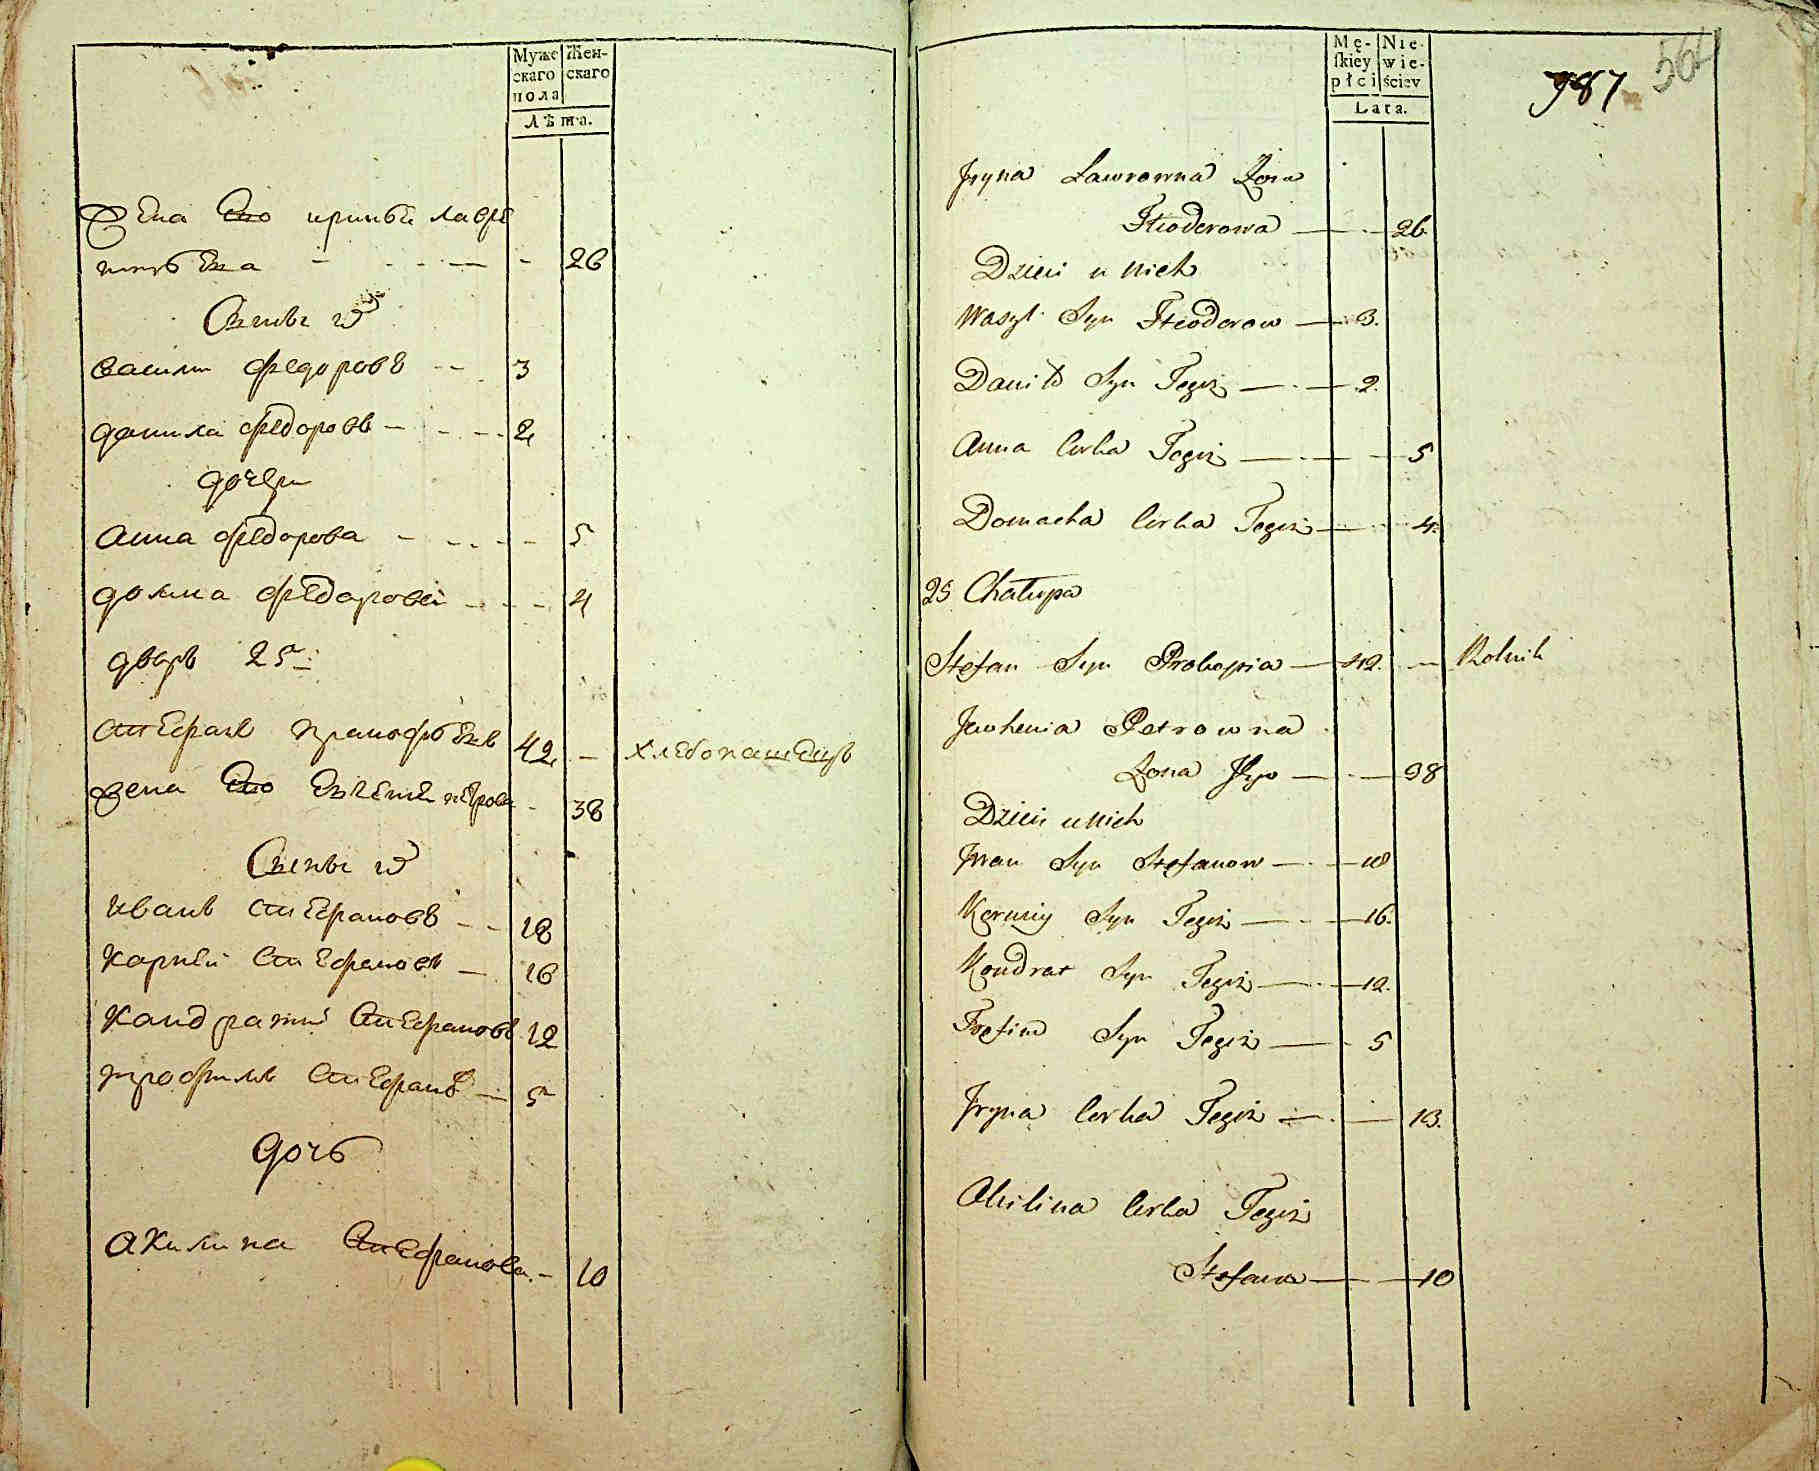 Муже
скаго
пола
Жен-
скаго
Лѣта.
Жена Его ирина лавре
нтьева - - - - 26
Сыны ѿ
василии федоровъ - - 3
данила федоровъ - - - 2
дочери
анна федорова - - - - 5
домна федорова - - - 4
дворъ 25й
стефанъ прокофьевъ 42 - хлебопашецъ
жена Его Евгения петрова - 38
Сыны ѿ
иванъ стефановъ - - 18
карней стефановъ - 16
кандратий стефановъ 12
трофимъ стефановъ - 5
дочь
акилина стефанова - 10
Mę-
skiey
płci
Nie-
wie-
ściey
Lata.
987
Jryna Lawrowna Zona
Fteoderowa - - 26
Dzieci u nich
Wasyl Syn Fteoderow - 3.
Daniło Syn Tegiż - - 2.
Anna Corka Tegiż - - - 5
Domacha Corka Tegiż - - 4.
25 Chałupa
Stefan Syn Prokopia - 42. - Rolnik
Jewhenia Petrowna
Zona Jego - - 38
Dzieci u nich
Jwan Syn Stefanow - - 18
Korniy Syn Tegiż - - 16.
Kondrat Syn Tegiż - - 12.
Trofim Syn Tegiż - - 5
Jryna Corka Tegiż - - - 13.
Akilina Corka Tegiż
Stefana - - 10